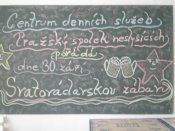 Centrum denních služeb
Pražský spolek neslyšících
pořádá
dne 30. září
Svatováclavskou zábavu